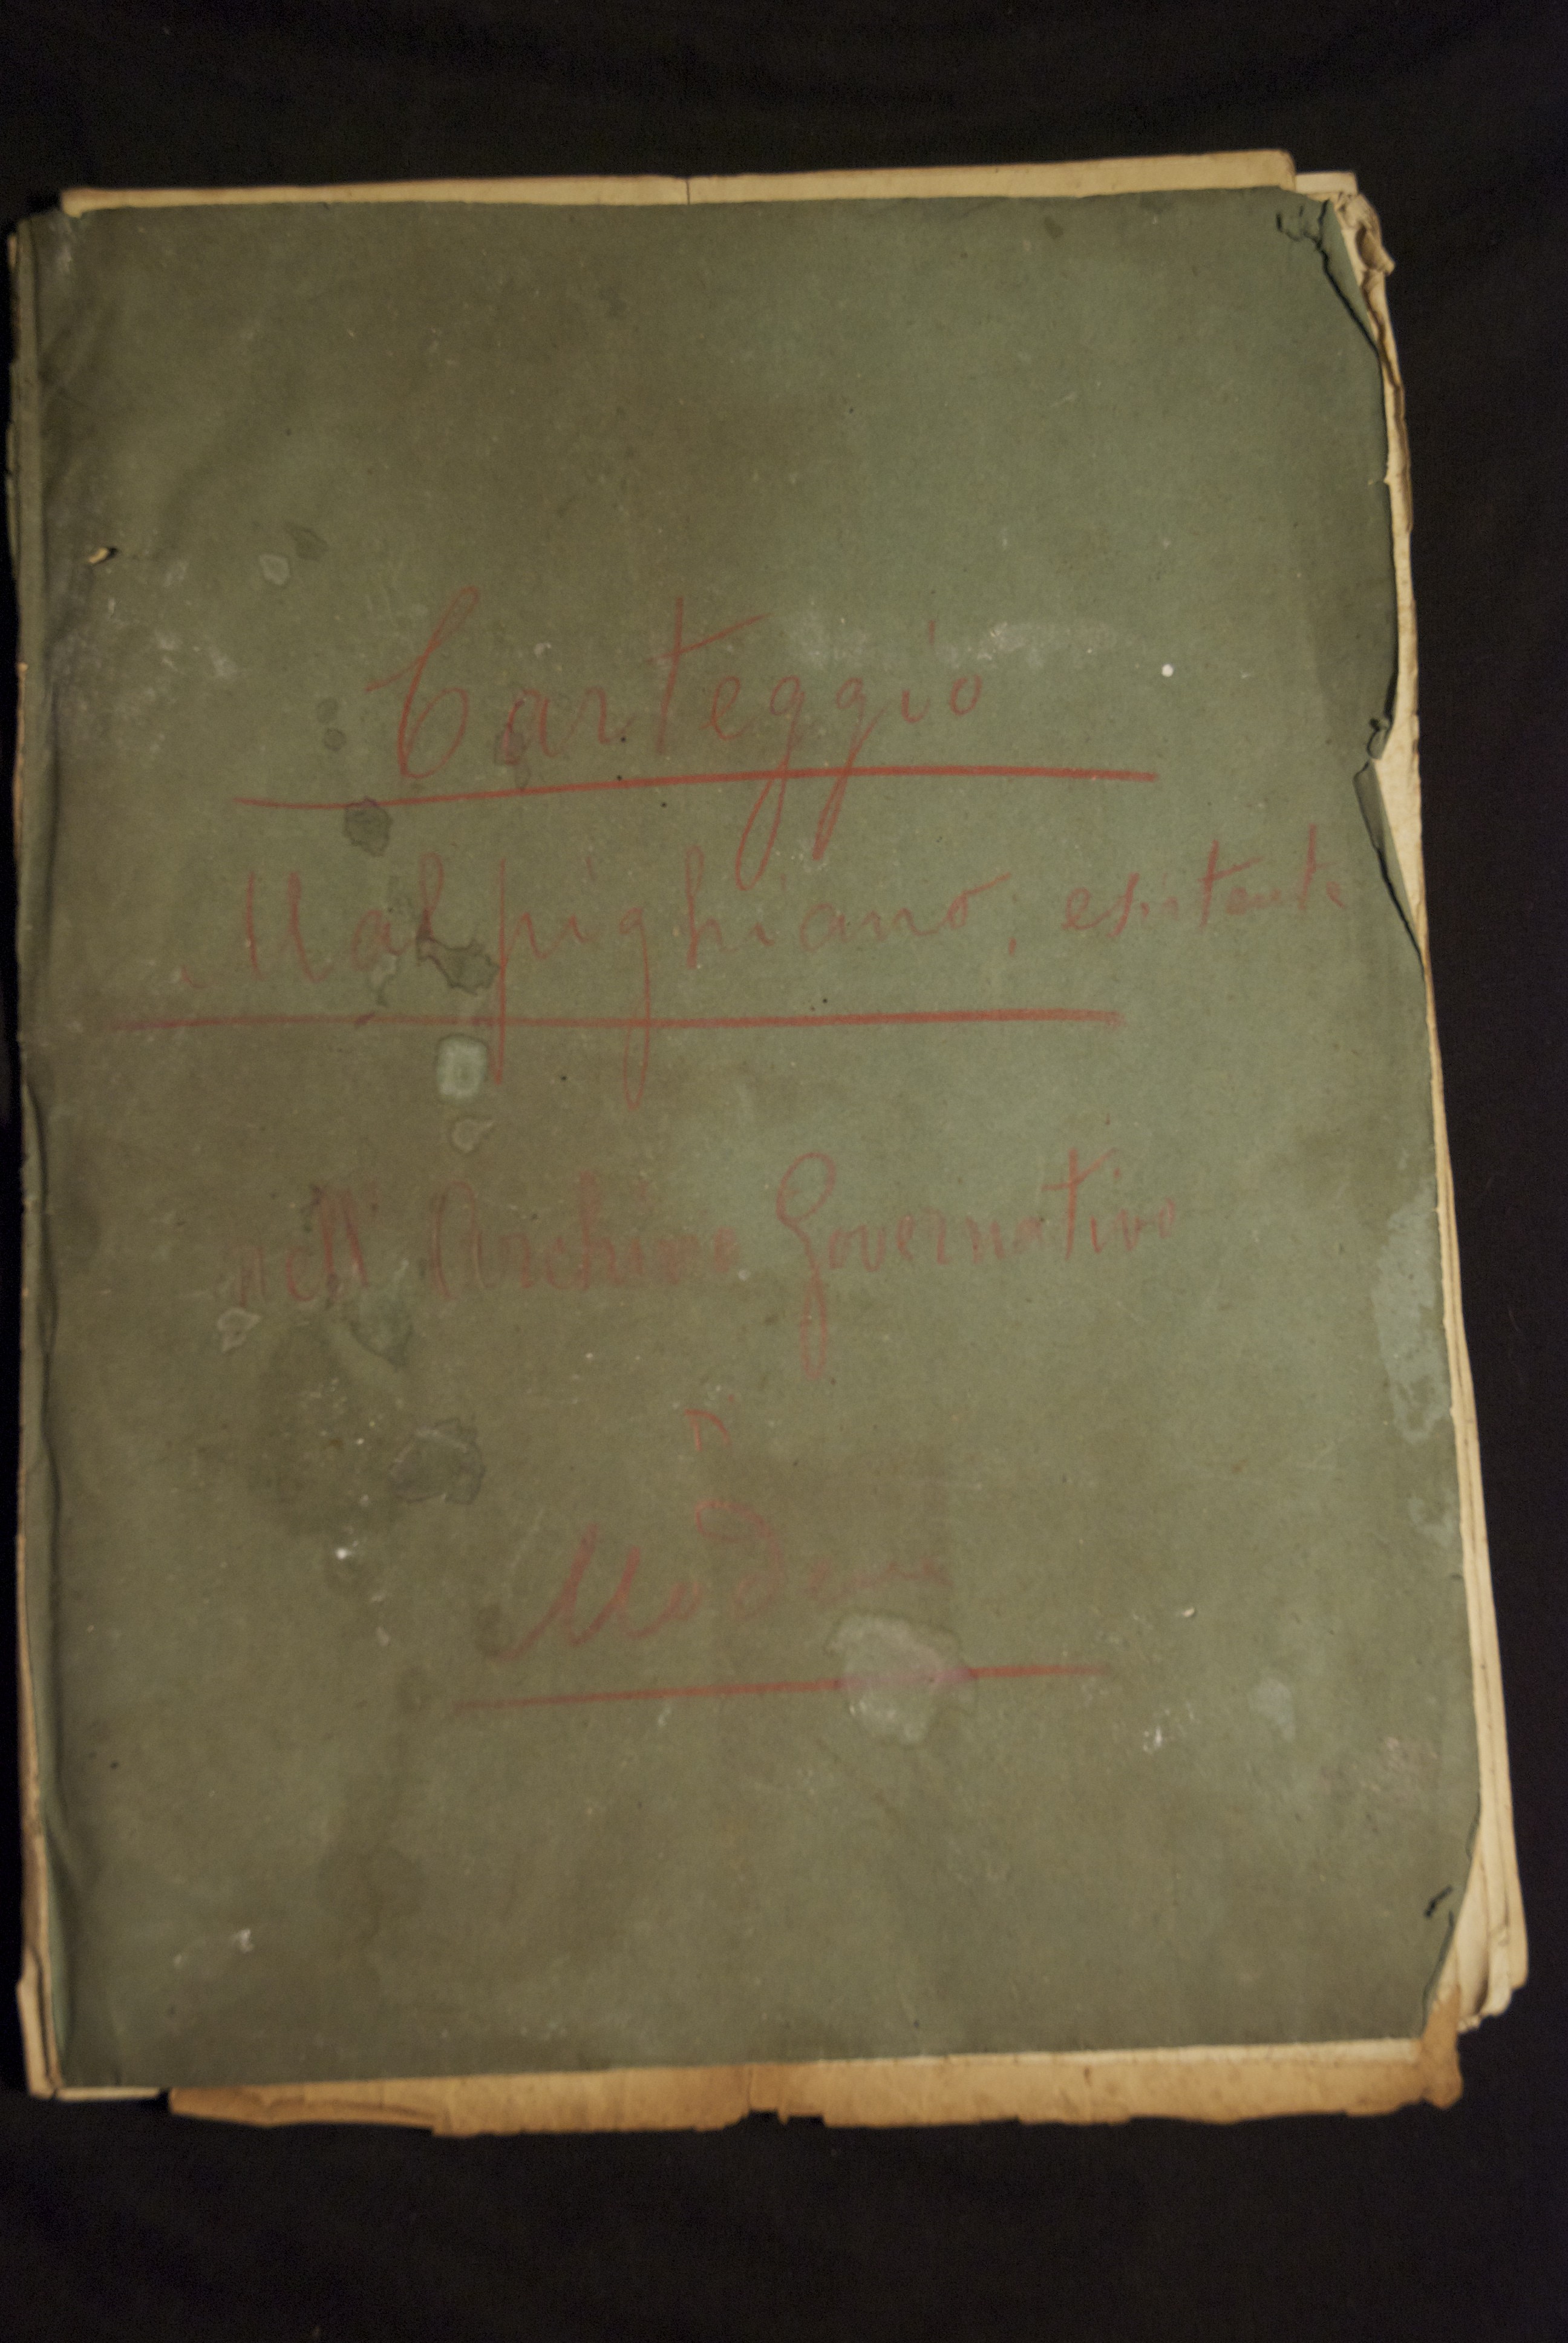 Carteggio
Malpighiano, esistente
nell' Archivio Governativo
Di
Modena